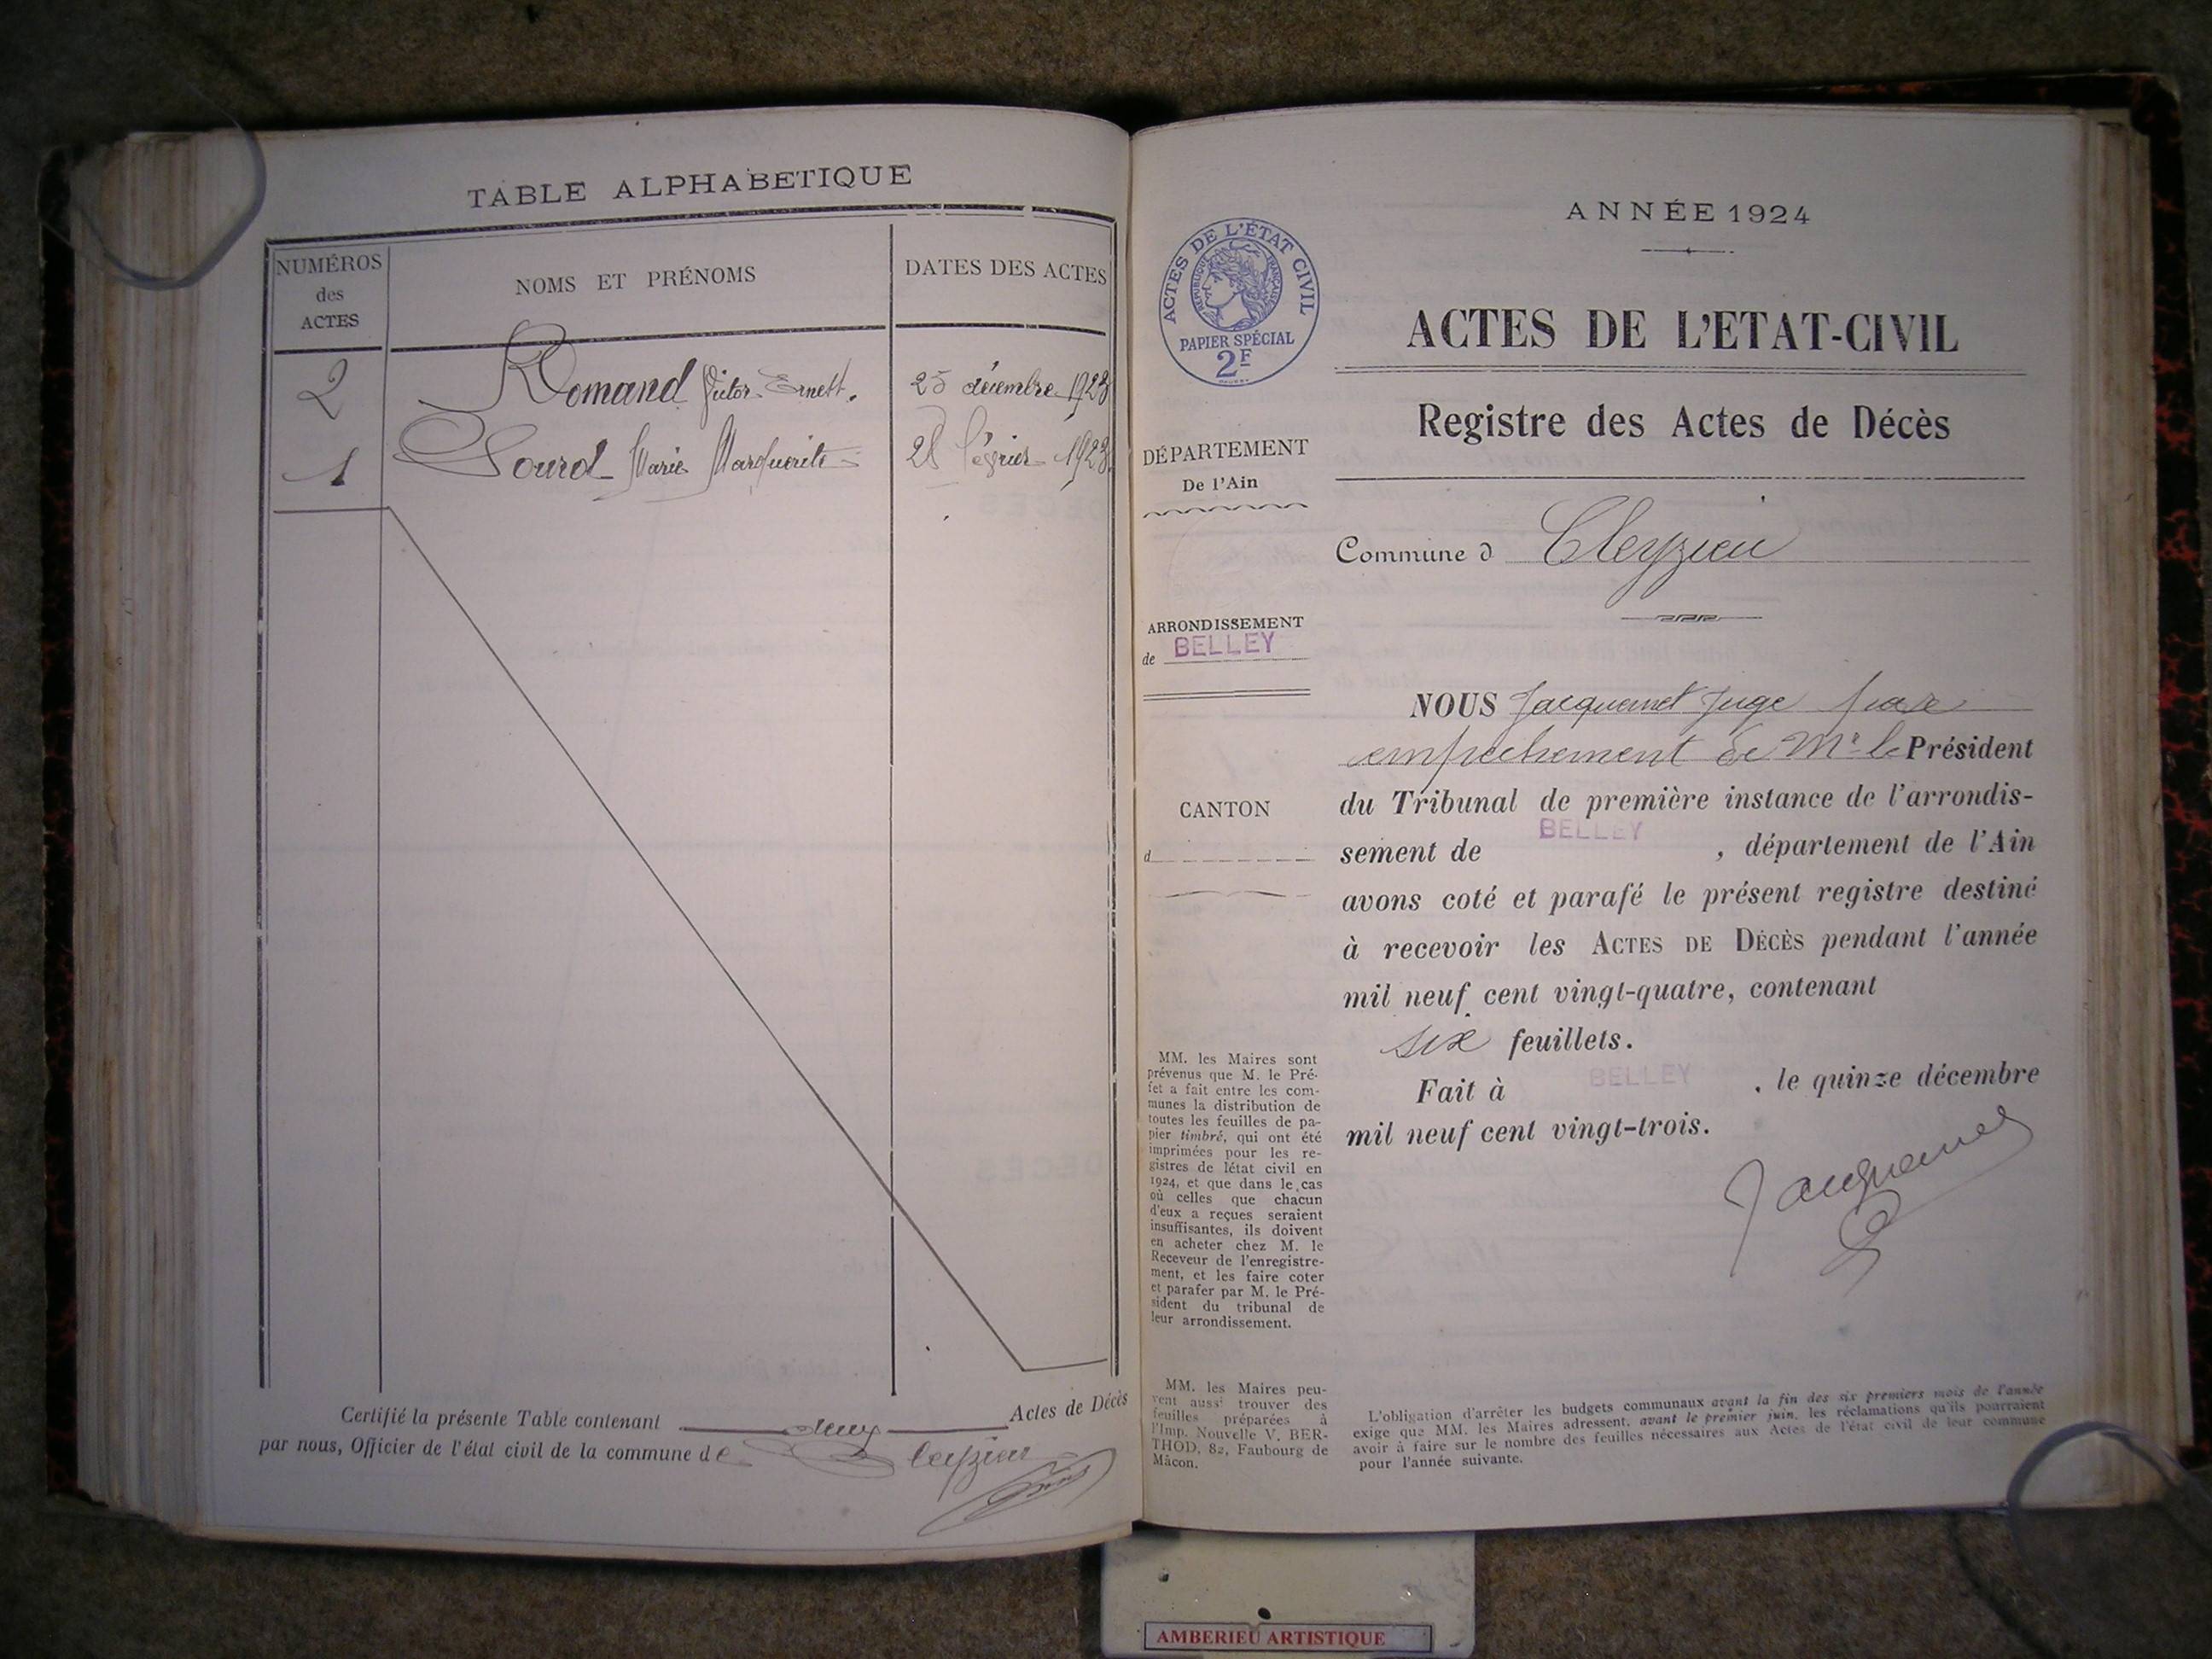 TABLE ALPHABETIQUE
NUMÉROS
des
ACTES
NOMS ET PRÉNOMS
DATES DES ACTES
2 Romand Victor Ernest. 25 décembre 1923
1 Marie Marguerite 28 février 1923
Certifié la présente Table contenant deux Actes de Décès
par nous, Officier de l'état civil de la commune de Cleyzieu
ANNÉE 1924
ACTES DE L'ÉTAT CIVIL
RÉPUBLIQUE FRANÇAISE
PAPIER SPÉCIAL
2F
ACTES DE L'ETAT-CIVIL
Registre des Actes de Décès
DÉPARTEMENT
De l'Ain
Commune d Cleyzieu
ARRONDISSEMENT
de BELLEY
CANTON
d
NOUS Jacquemet Juge par
empêchement de Mr le Président
du Tribunal de première instance de l'arrondis-
sement de BELLEY, département de l'Ain
avons coté et parafé le présent registre destiné
à recevoir les ACTES DE DÉCÈS pendant l'année
mil neuf cent vingt-quatre, contenant
six feuillets.
Fait à BELLEY, le quinze décembre
mil neuf cent vingt-trois.
Jacquemet
MM. les Maires sont
prévenus que M. le Pré-
fet a fait entre les com-
munes la distribution de
toutes les feuilles de pa-
pier timbré, qui ont été
imprimées pour les re-
gistres de létat civil en
1924, et que dans le cas
où celles que chacun
d'eux a reçues seraient
insuffisantes, ils doivent
en acheter chez M. le
Receveur de l'enregistre-
ment, et les faire coter
et parafer par M. le Pré-
sident du tribunal de
leur arrondissement.
MM. les Maires peu-
vent aussi trouver des
feuilles préparées à
l'Imp. Nouvelle V. BER-
THOD, 82, Faubourg de
Mâcon.
L'obligation d'arrêter les budgets communaux avant la fin des six premiers mois de l'année
exige que MM. les Maires adressent, avant le premier juin, les réclamations qu'ils pourraient
avoir à faire sur le nombre des feuilles nécessaires aux Actes de l'état civil de leur commune
pour l'année suivante.
AMBERIEU ARTISTIQUE